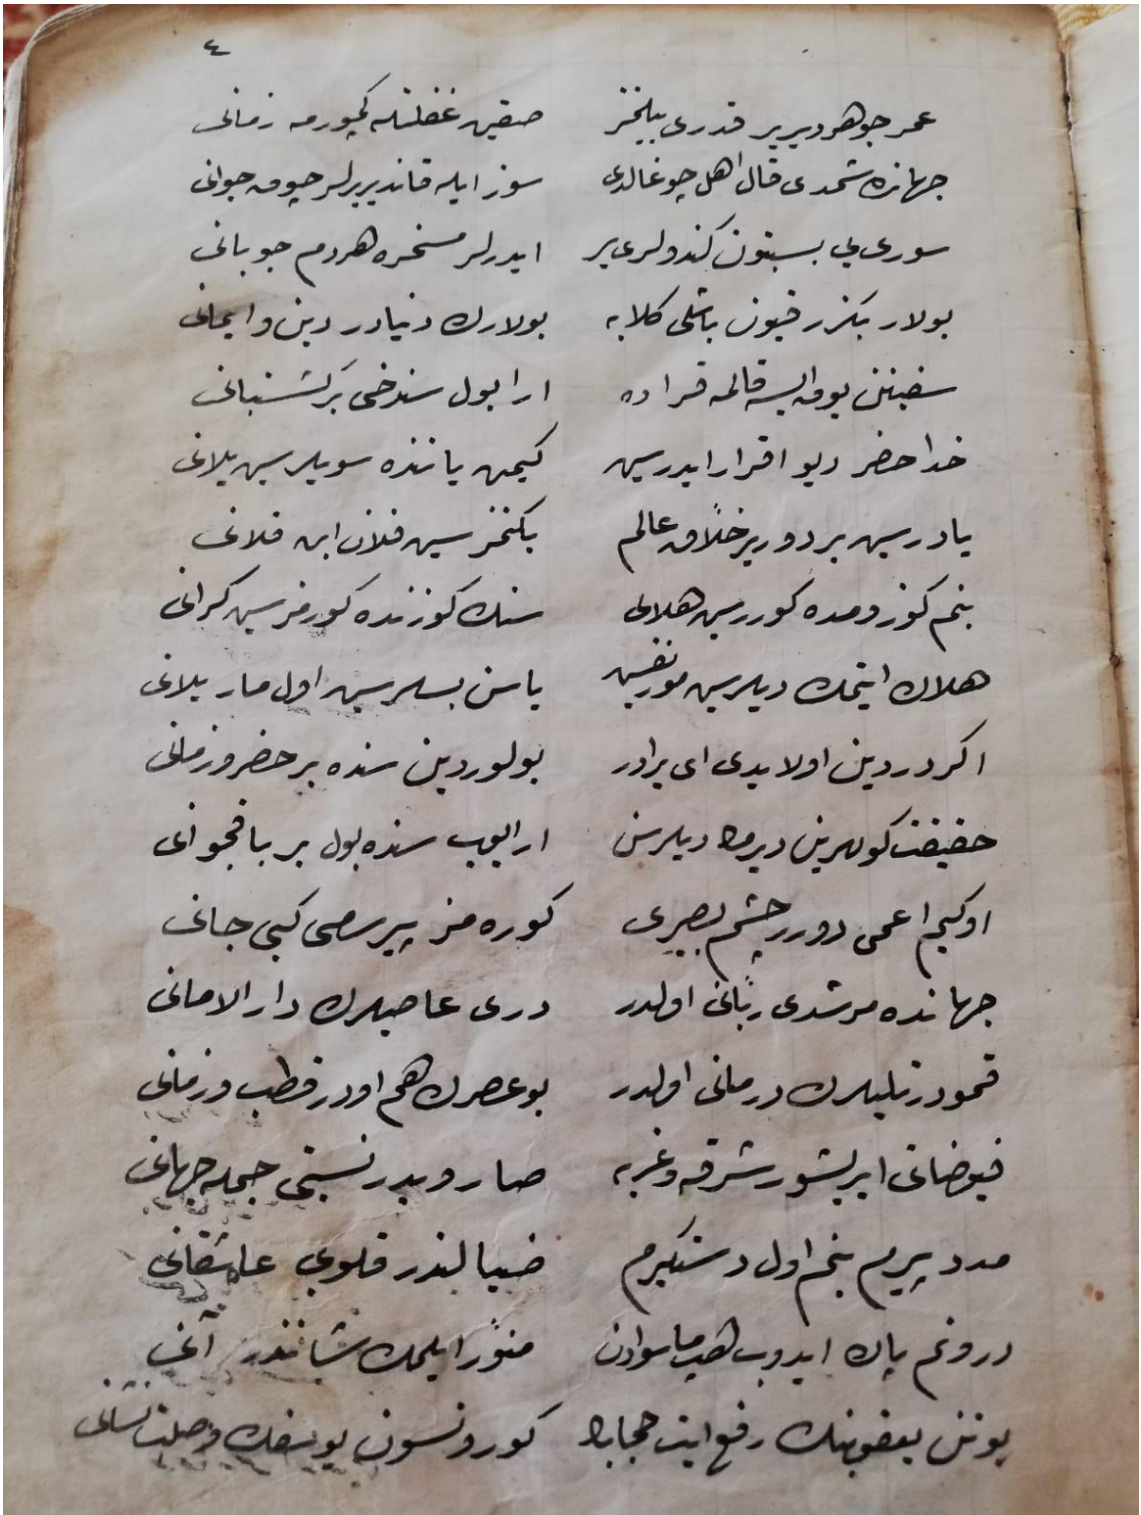 ٤
عمر جوهردیریر قدری بیلخز صقین غفلتله کچورمه زمانی
جهانده شمدی قال اهل چوغالدی سوز ایله قاندیریرلر چوق جوانی
سوری یی بستون کندولری یر ایدرلر مسخره هردم جوبانی
بولار بکزر قیون باشلی کلابه بولارك دنیادر دین و ایمانی
سفینئن یوق ایسه قالمه قراده ارا بول سندخی برکشتبانی
خدا حضر دیو اقرار ایدرسین کیمین یاننده سویلرسین یلانی
یادرسین بر دوریر خلاق عالم بکنمزسین فلان ابن فلانی
بنم کوزومده کوررسین هلالی سنك کوزنده کورمزسین کرانی
هلاك ایتمك دیلرسین مور نفسین یاسن بسلرسین اول مار یلانی
اکر درددین اولایدی ای برادر بولوردین سنده بر حضر و زمانی
حقیقت کوهرین دیرمك دیلرسن ارایوب سنده بول بر باغچوانی
اوکیم اعمی دورر چشم بصیری کوره مز پیر سامی کبی جانی
جهانده مرشدی ربّانی اولدر دری عاصیلرك دار الامانی
قمو دردلیلرك درمانی اولدر بو عصرك هم اودر قطب و زمانی
فیوضاتی ایریشور شرقه و غربه صارویدر نسبتی جمله جهانی
مدد پیرم بنم اول دستکیرم ضیالندر قلوبی عاشقانی
درونم پاك ایدوب هپ ماسوادن منوّر ایلمك شاننددر آنی
یوزنن یعقوبنك رفع ایت حجابك کورونسون یوسفك وصلت نشانی